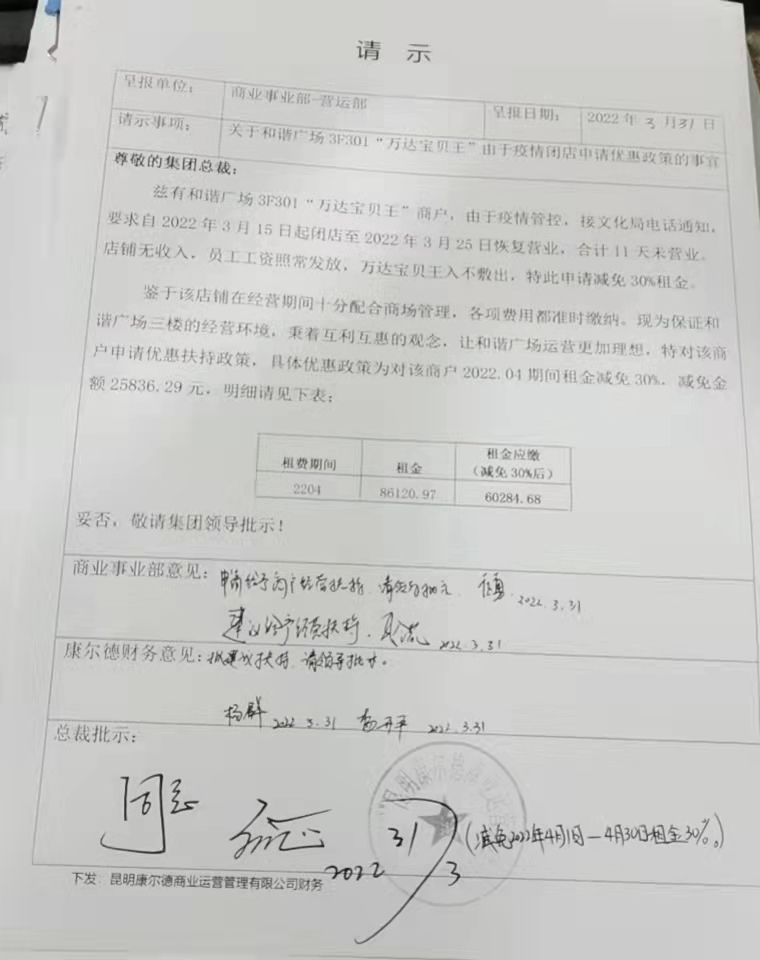 请 示
呈报单位： 商业事业部-营运部 呈报日期： 2022 年 3 月 31 日
请示事项： 关于和谐广场 3F301“万达宝贝王”由于疫情闭店申请优惠政策的事宜
尊敬的集团总裁：
兹有和谐广场 3F301“万达宝贝王”商户，由于疫情管控，接文化局电话通知，
要求自 2022 年 3 月 15 日起闭店至 2022 年 3 月 25 日恢复营业，合计 11 天未营业。
店铺无收入，员工工资照常发放，万达宝贝王入不敷出，特此申请减免 30%租金。
鉴于该店铺在经营期间十分配合商场管理，各项费用都准时缴纳。现为保证和
谐广场三楼的经营环境，秉着互利互惠的观念，让和谐广场运营更加理想，特对该商
户申请优惠扶持政策，具体优惠政策为对该商户 2022.04 期间租金减免 30%，减免金
额 25836.29 元，明细请见下表：
租费期间 租金 租金应缴
（减免 30%后）
2204 86120.97 60284.68
妥否，敬请集团领导批示！
商业事业部意见：申请给予商户经营扶持，请领导批示。 2022.3.31
建议给予经营扶持， 2022.3.31
康尔德财务意见：拟建议扶持，请领导批示。
杨群 2022 3.31 2022.3.31
总裁批示：
同意
2022 31/3 (减免2022年4月1日—4月30日租金30%。)
昆明康尔德商业运营
下发：昆明康尔德商业运营管理有限公司财务